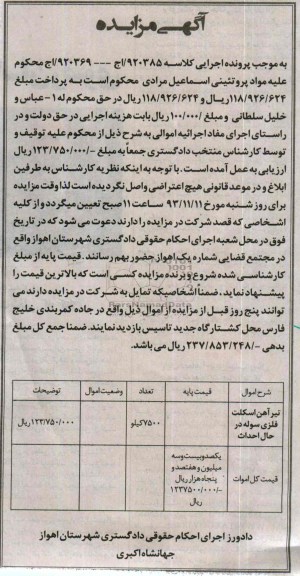 آگهی مزایده
به موجب پرونده اجرایی کلاسه ۹۲۰۳۸۵/اج --- ۹۲۰۳۶۹/اج محکوم
علیه مواد پروتئینی اسماعیل مرادی محکوم است به پرداخت مبلغ
۱۱۸/۹۲۶/۶۲۴ ریال و ۱۱۸/۹۲۶/۶۲۴ ریال در حق محکوم له ۱- عباس و
خلیل سلطانی و مبلغ ۱۰۰/۰۰۰ ریال بابت هزینه اجرایی در حق دولت و در
راستای اجرای مفاد اجرائیه اموالی به شرح ذیل از محکوم علیه توقیف و
توسط کارشناس منتخب دادگستری جمعاً به مبلغ -/۱۲۳/۷۵۰/۰۰۰ ریال
ارزیابی به عمل آمده است. با توجه به اینکه نظریه کارشناس به طرفین
ابلاغ و در موعد قانونی هیچ اعتراضی واصل نگردیده است لذا وقت مزایده
برای روز شنبه مورخ ۹۳/۱۱/۱۱ ساعت ۱۱ صبح تعیین میگردد و از کلیه
اشخاصی که قصد شرکت در مزایده را دارند دعوت می شود که در تاریخ
فوق در محل شعبه اجرای احکام حقوقی دادگستری شهرستان اهواز واقع
در مجتمع قضایی شماره یک اهواز حضور بهم رسانند. قیمت پایه از مبلغ
کارشناسی شده شروع و برنده مزایده کسی است که بالاترین قیمت را
پیشنهاد نماید، ضمناً اشخاصیکه تمایل به شرکت در مزایده دارند می
توانند پنج روز قبل از مزایده از اموال ذیل واقع در جاده کمربندی خلیج
فارس محل کشتارگاه جدید تاسیس بازدید نمایند. ضمنا جمع کل مبلغ
بدهی -/۲۳۷/۸۵۳/۲۴۸ ریال می باشد.
شرح اموال قیمت پایه تعداد وضعیت اموال توضیحات
تیر آهن اسکلت
فلزی سوله در
حال احداث
۷۵۰۰ کیلو ۱۲۳/۷۵۰/۰۰۰ ریال
قیمت کل اموات یکصد و بیست و سه
میلیون و هفتصد و
پنجاه هزار ریال
-/۱۲۳۷۵۰۰/۰۰۰
ریال
دادورز اجرای احکام حقوقی دادگستری شهرستان اهواز
جهانشاه اکبری